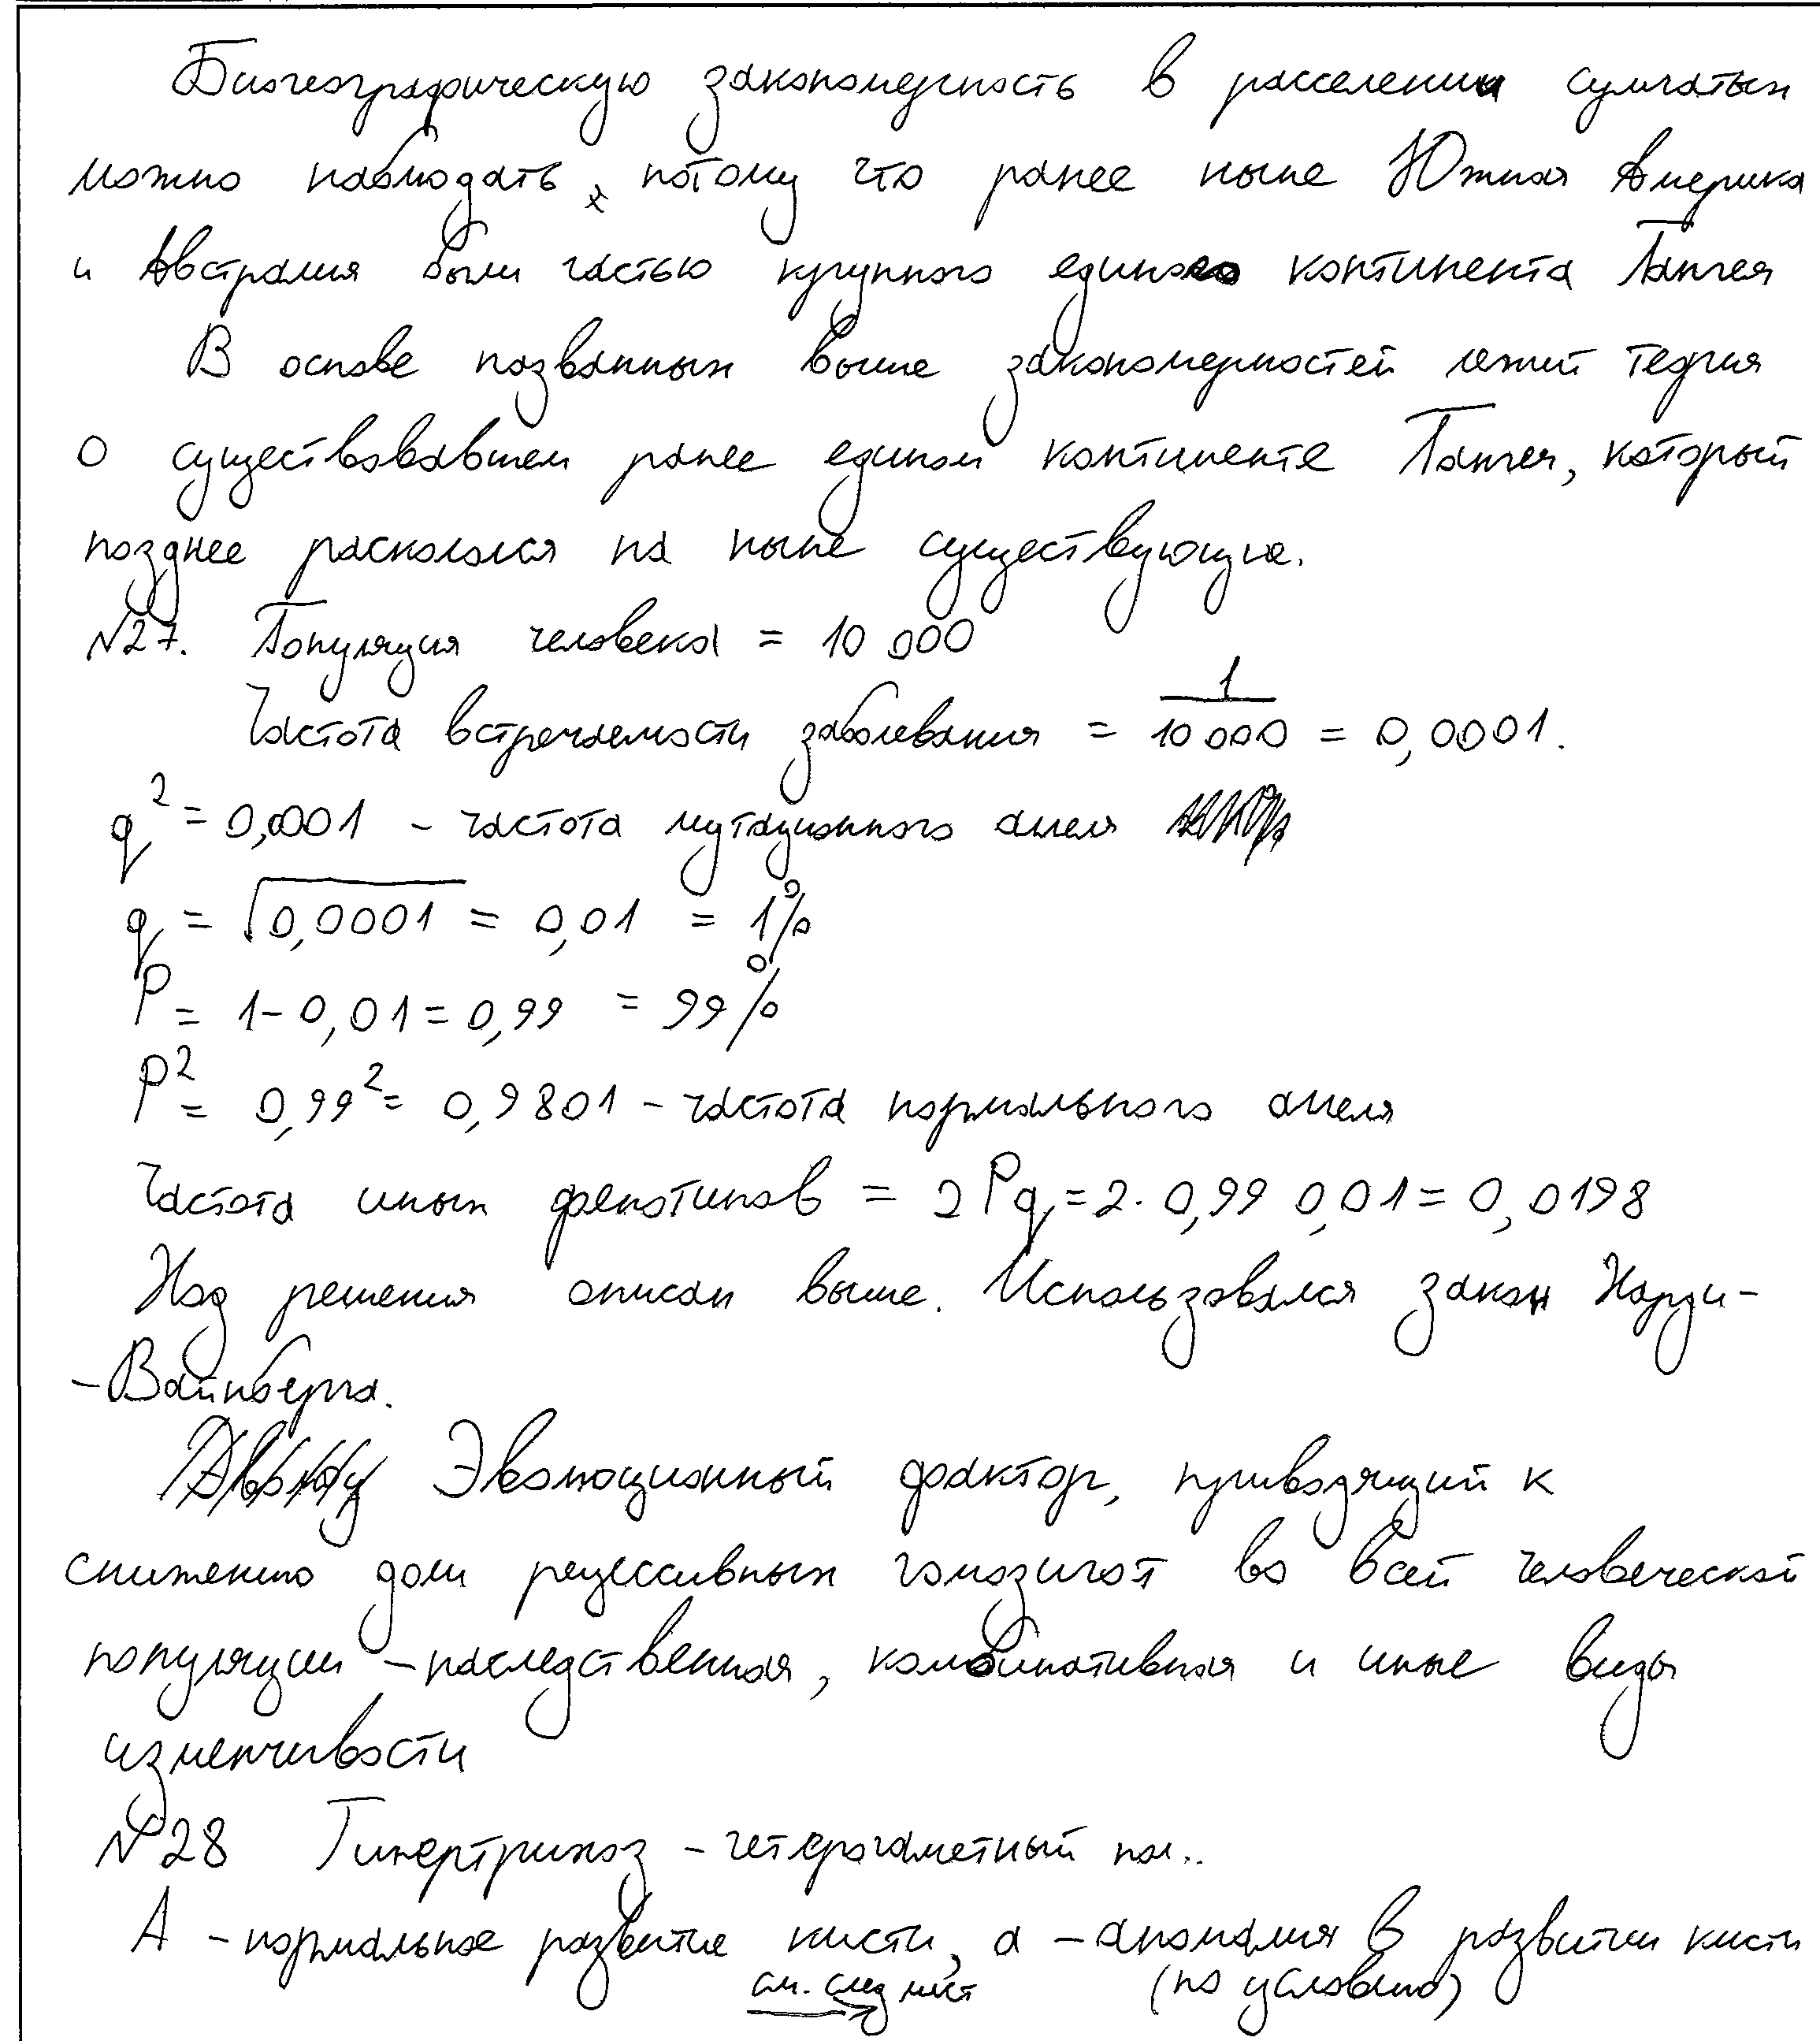 Биогеографическую закономерность в расселении сумчатых
можно наблюдать, потому что ранее ныне Южная Америка
и Австралия были частью крупного единого континента Пангея
В основе названных выше закономерностей лежит теория
о существовавшем ранее едином континенте Пангея, который
позднее раскололся на ныне существующие.
№27. Популяция человека = 10 000
Частота встречаемости заболевания = 1/10 000 = 0,0001.
q² = 0,0001 – частота мутационного аллеля
q = √0,0001 = 0,01 = 1%
P = 1 - 0,01 = 0,99 = 99%
P² = 0,99² = 0,9801 – частота нормального аллеля
Частота иных фенотипов = 2Pq = 2 · 0,99 0,01 = 0,0198
Ход решения описан выше. Использовался закон Харди-
-Вайнберга.
Эволюционный фактор, приводящий к
снижению доли рецессивных гомозигот во всей человеческой
популяции – наследственная, комбинативная и иные виды
изменчивости
№28 Гипертрихоз – гетерогаметный пол..
А – нормальное развитие кисти, а – аномалия в развитии кисти
см. след лист (по условию)